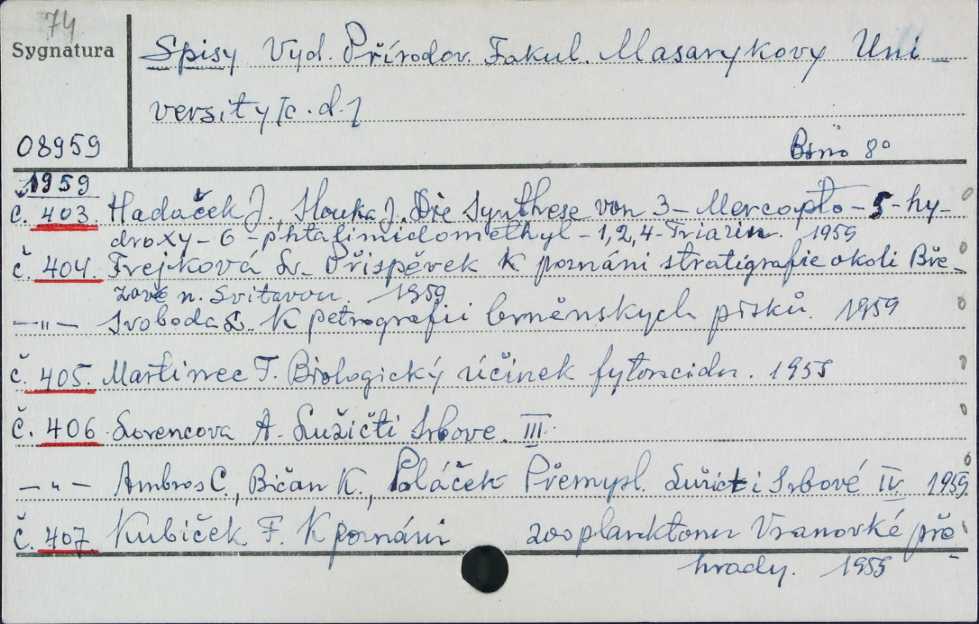 74
Sygnatura
08959
Spisy Vyd. Přírodov. Fakul. Masarykovy Uni-
versity [c. d.]
Brno 8°
1959
č. 403. Hadaček J., Slouka J. Die Synthese von 3-Mercapto-5-hy-
droxy-6-phtalimidomethyl-1,2,4-Triazin. 1959
č. 404. Trejtková Sv. Příspěvek k poznáni stratigrafie okoli Bře-
zové n. Svitavou. 1959
—"— Svoboda L. K petrografii brněnskych písků. 1959
č. 405. Martinec T. Biologický účinek fytoncidu. 1955
č. 406 Lorencova A. Lužičti Srbove. III.
—"— Ambros C., Bičan K., Poláček Přemysl. Lužičti Srbové IV. 1959.
č. 407 Kubiček F. K poznáni zooplanktonu Vranovké pře-
hrady. 1955